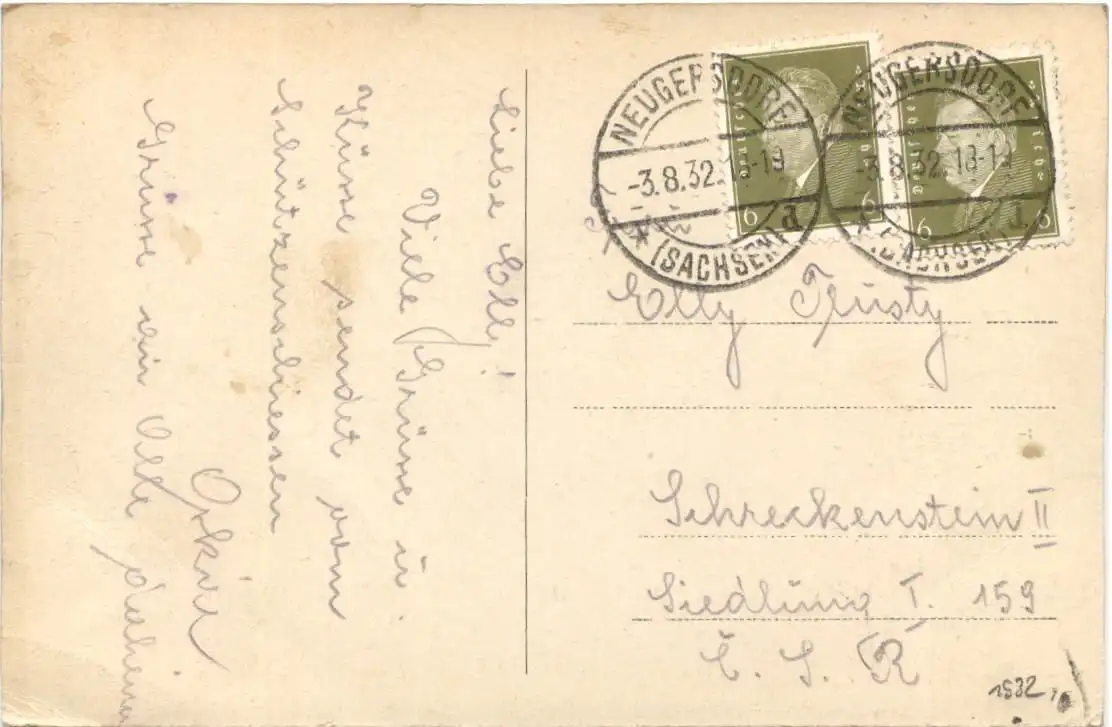 Liebe Elly!
Viele Grüsse u.
Küsse sendet vom
Schützenschiessen
Oskar
Grüsse an Alle daheim
NEUGERSDORF
-3.8.32. 18-19
* (SACHSEN) d
NEUGERSDORF
-3.8.32. 18-19
* (SACHSEN)
Deutsches Reich
6 6
Deutsches Reich
6 6
Elly
Schreckenstein II
Siedlung I. 159
Č. S. R
1932